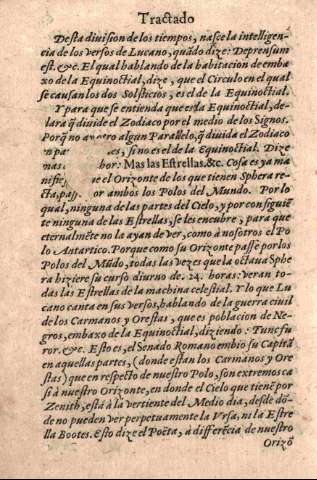 Tractado
Desta division de los tiempos, nasce la intelligen-
cia de los versos de Lucano, quãdo dize: Deprensum
est. &c. El qual hablando de la habitacion de emba
xo de la Equinoctial, dize, que el Circulo en el qual
se causan los dos Solsticios, es el de la Equinoctial.
Y para que se entienda que es la Equinoctial, de-
lara q̃ divide el Zodiaco por el medio de los Signos.
Porq̃ no algun Parallelo, q̃ divida el Zodiaco
es, si no es el de la Equinoctial. Dize
mas hor: Mas las Estrellas. &c. Cosa es ya ma
nifie e el Orizonte de los que tienen Sphera re-
cta, pas or ambos los Polos del Mundo. Por lo
qual, ninguna de las partes del Cielo, y por consiguiẽ
te ninguna de las Estrellas, se les encubre, para que
eternalmẽte no la ayan de ver, como à nosotros el Po
lo Antartico. Porque como su Orizonte passe por los
Polos del Mũdo, todas las vezes que la octava Sphe
ra hiziere su curso diurno de .24. horas: veran to
das las Estrellas de la machina celestial. Y lo que Lu
cano canta en sus versos, hablando de la guerra civil
de los Carmanos y Orestas, que es poblacion de Ne-
gros, embaxo de la Equinoctial, diziendo: Tunc fu
ror. &c. Esto es, el Senado Romano embio su Capitã
en aquellas partes, (donde estan los Carmanos y Ore
stas) que en respecto de nuestro Polo, son extremos ca
si à nuestro Orizonte, en donde el Cielo que tienẽ por
Zenith, està à la vertiente del Medio dia, desde dõ-
de no pueden ver perpetuamente la Vrsa, ni la Estre
lla Bootes. Esto dize el Poëta, à differẽcia de nuestro
Orizõ